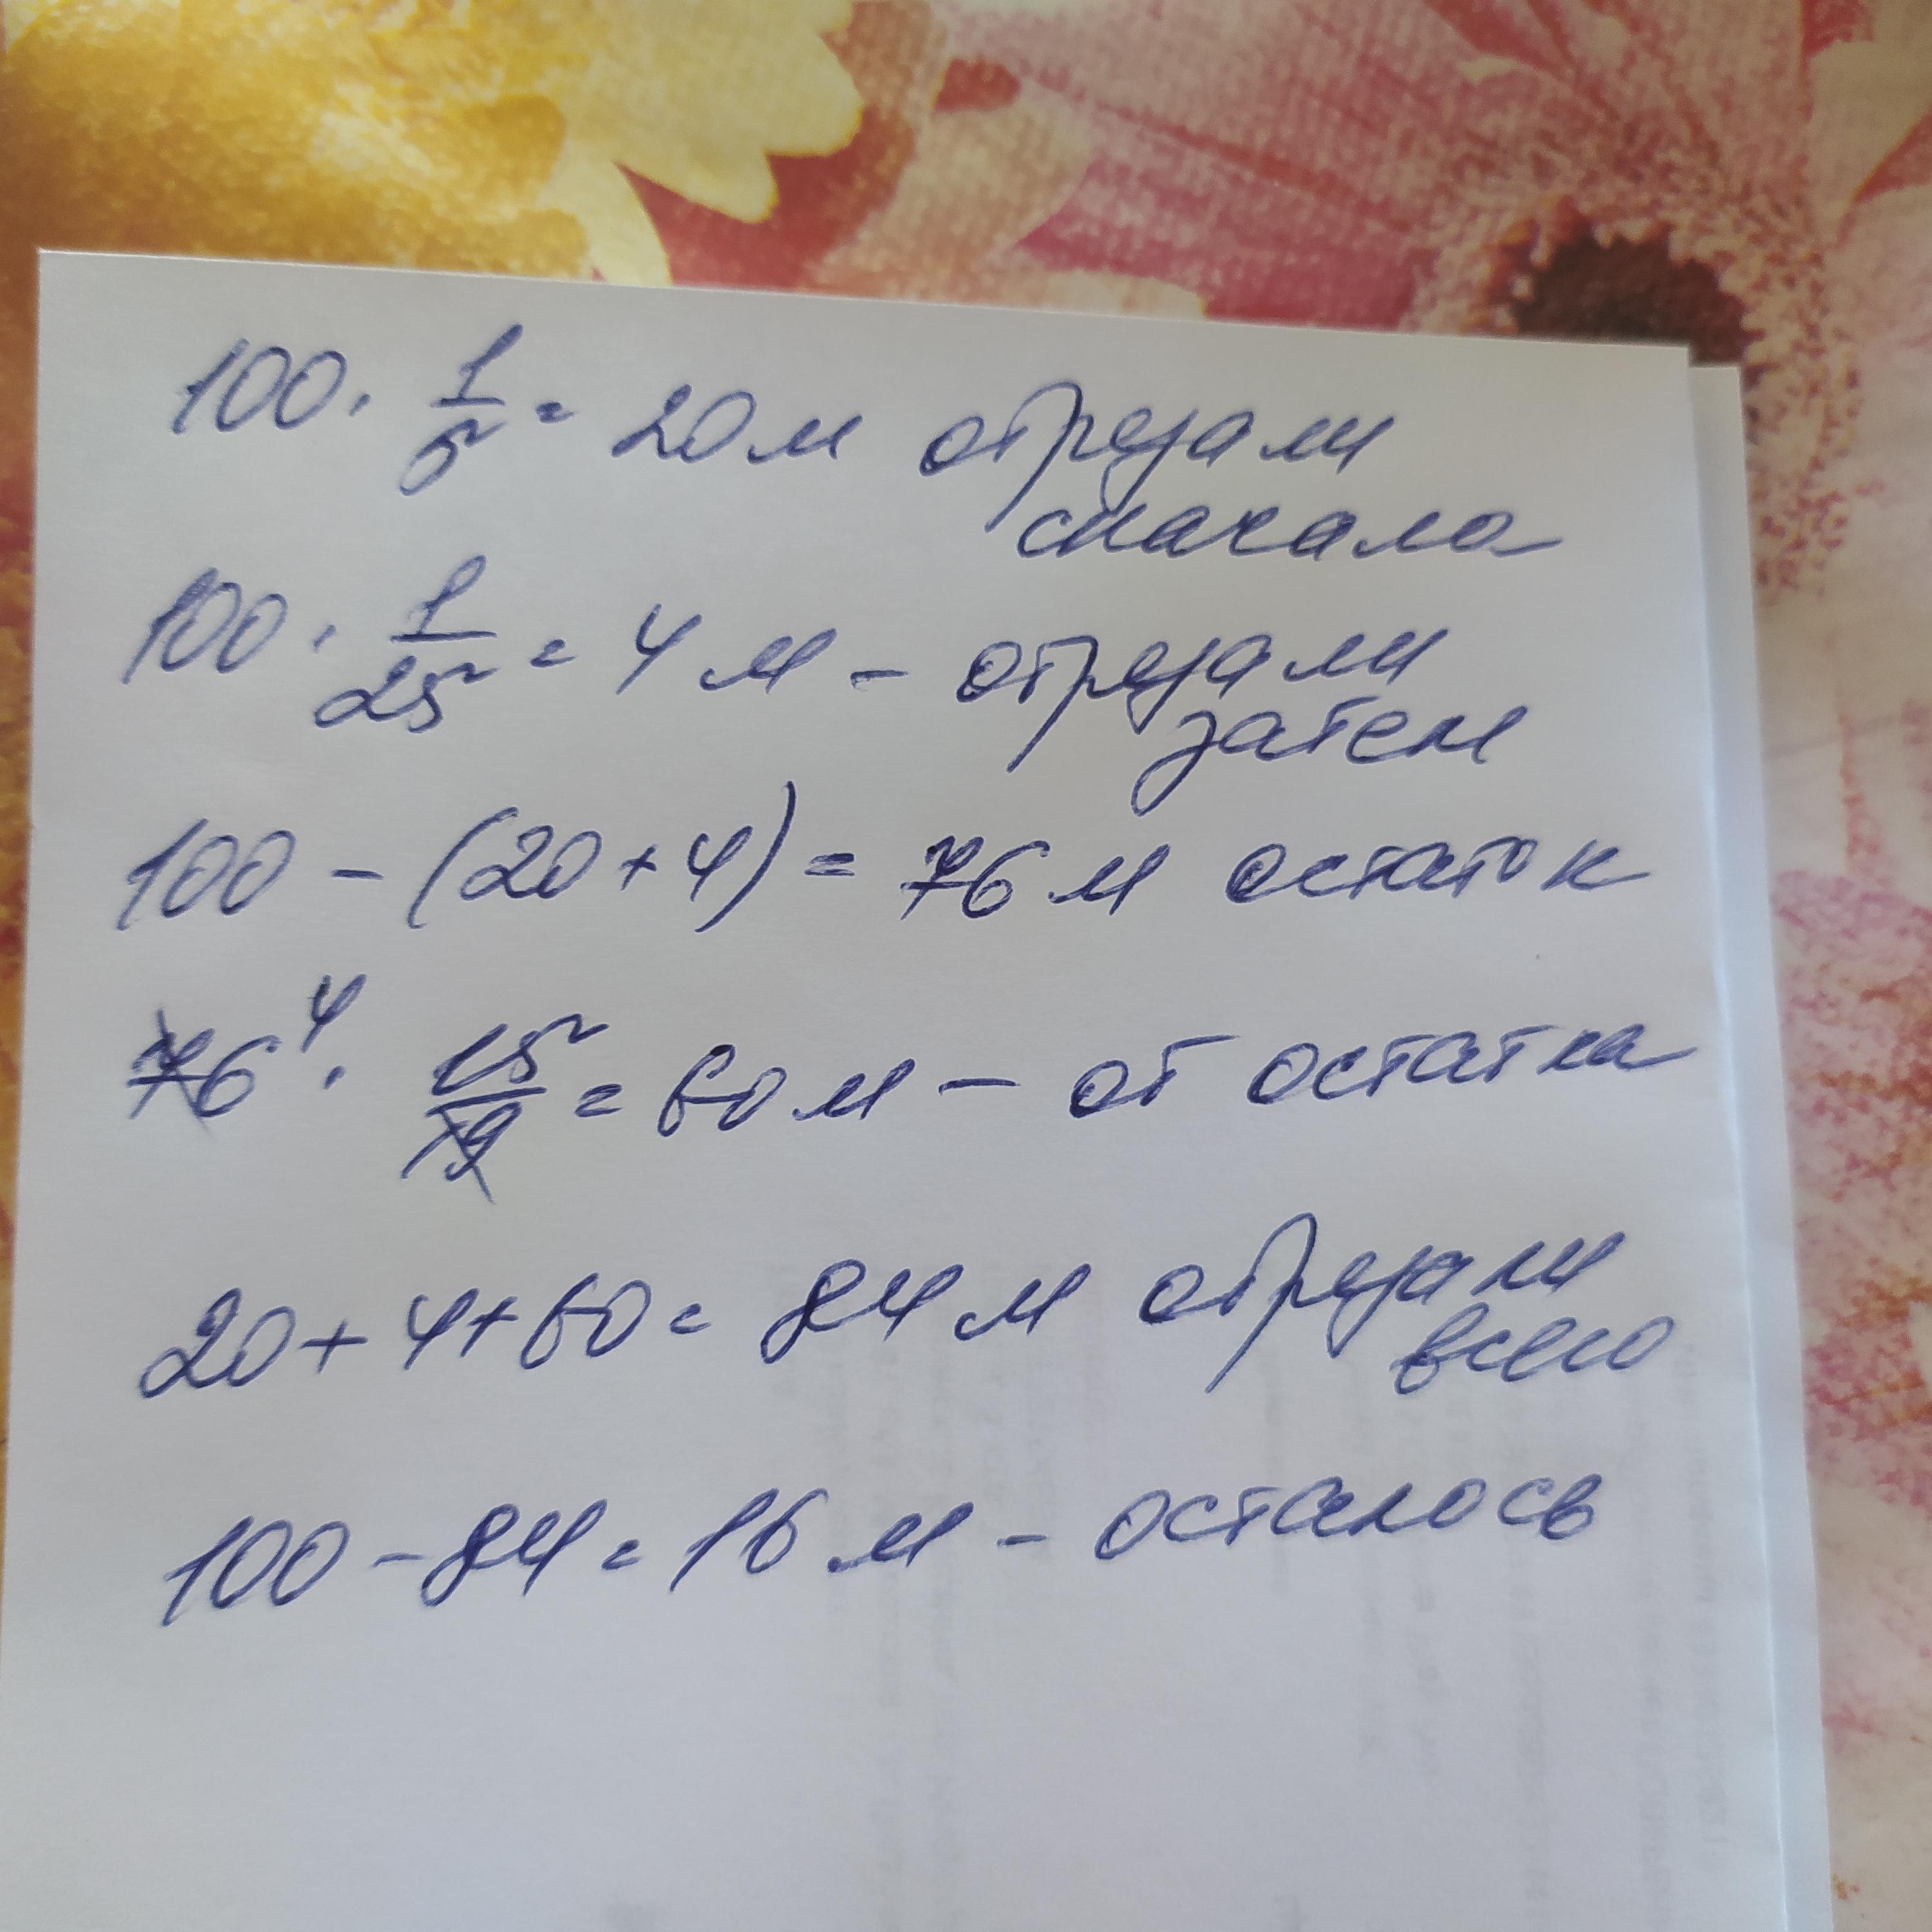 100 · 1/5 = 20 м отрезали
сначала
100 · 1/25 = 4 м – отрезали
затем
100 – (20 + 4) = 76 м остаток
76 4 · 15/19 = 60 м – от остатка
20 + 4 + 60 = 84 м отрезали
всего
100 – 84 = 16 м – осталось